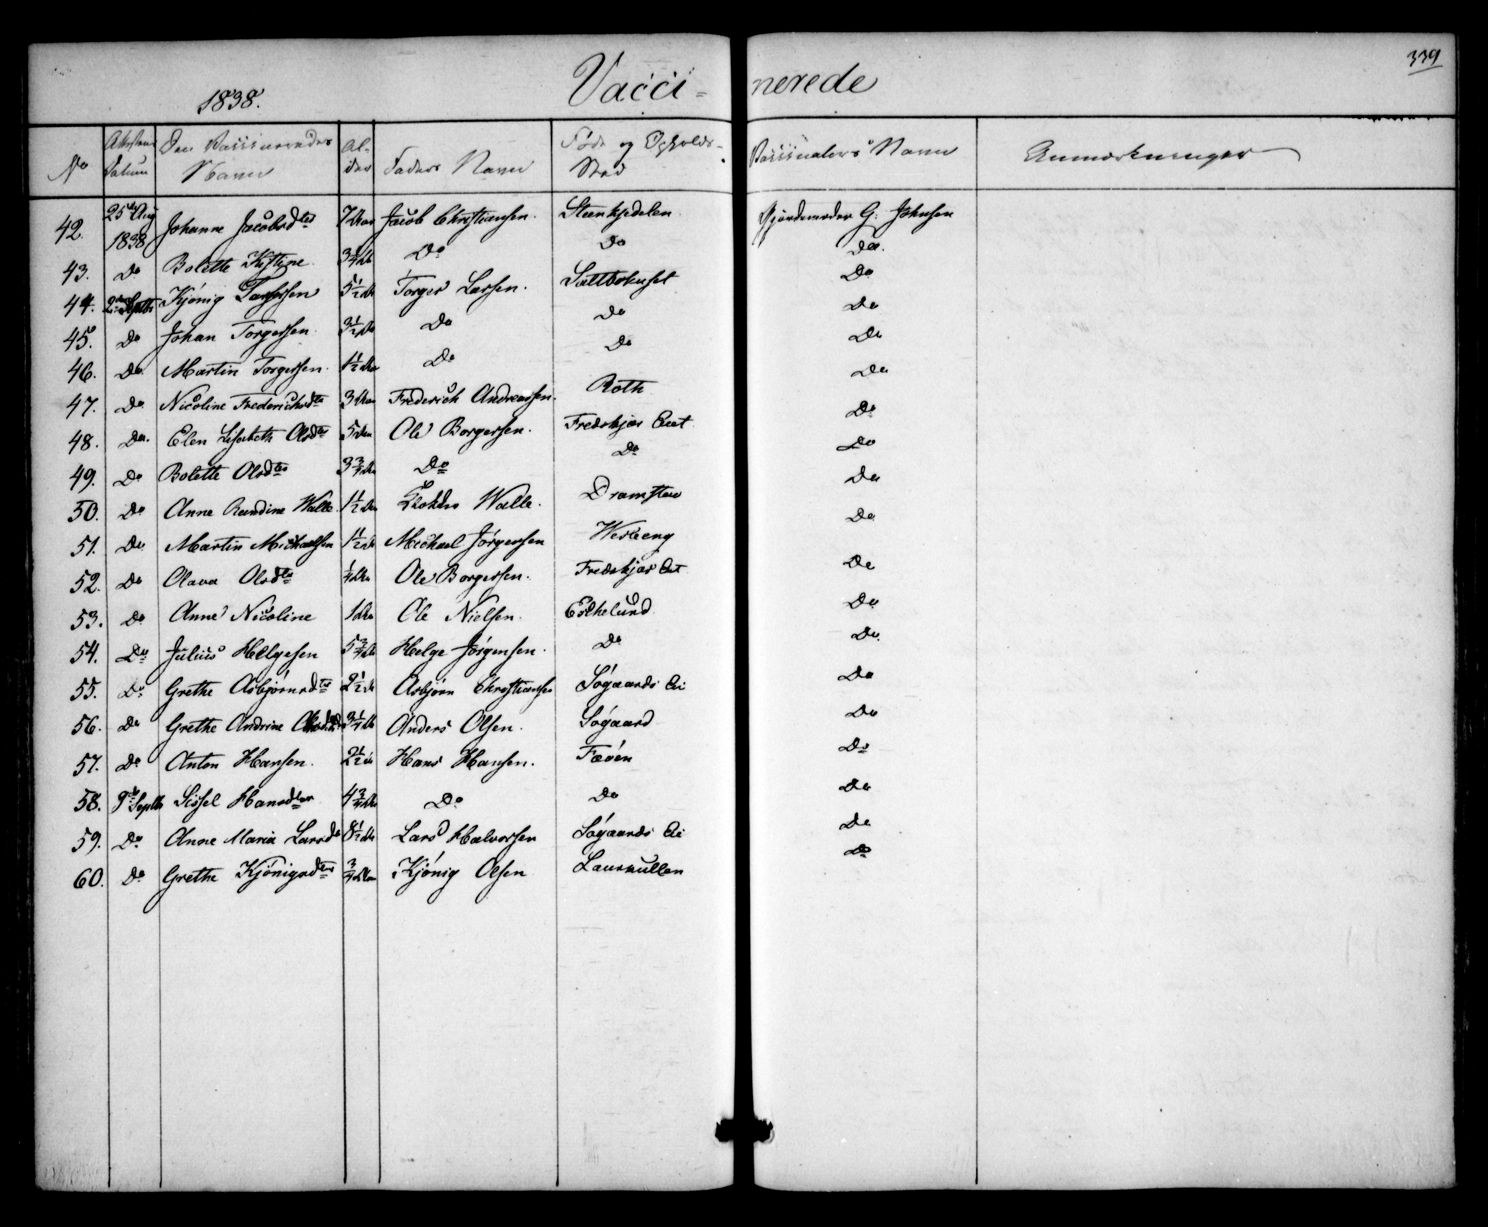 339
1838.
Vacci=nerede
No | Attestens Datum | Den Vaccineredes Navn | Alder | Faders Navn | Føde og Opholds-Sted | Vaccinateurs Navn | Anmærkninger
42. | 25de Aug 1838 | Johanne Jacobsdtr | 7 | Jacob Christiansen. | Steenkjedelen | Gjordemoder G: Johnsen
43. | Do | Bolette | 3 | Do | Do | Do
44. | 2den Septbr | Kjönig | 5½ | Torger Larsen. | | Do
45. | Do | Johan Torgersen | 3½ | Do | Do | Do
46. | Do | Martin Torgersen. | 1½ | Do | Do | Do
47. | Do | Nicoline Frederichsdtr | 3 | Frederich Andreassen. | Roth | Do
48. | Do. | Elen Lisebeth Olsdtr | 5 | Ole Borgersen. | Fredskjær Eiet | Do
49. | Do | Bolette Olsdtr | 3¾ | Do | Do | Do
50. | Do | Anne Randine Walle | 1½ | Walle. | Dramstad | Do
51. | Do | Martin Michaelsen | 1½ | Michael Jörgensen | | Do
52. | Do | Olava Olsdtr | ¼ | Ole Borgersen. | Fredskjær Eiet | Do
53. | Do | Anne Nicoline | 1 | Ole Nielsen. | Eskelund | Do
54. | Do | Julius Helgesen | 5¾ | Helge Jörgensen. | Do | Do
55. | Do | Grethe Asbjörnsdtr | 2½ | Asbjörn Christiansen | Sögaards Ei | Do
56. | Do | Grethe Andrine | 3¼ | Anders Olsen. | Sögaard | Do
57. | Do | Anton Hansen. | 2½ | Hans Hansen. | | Do
58. | 9de Septbr | Sissel Hansdtr | 4¾ | Do | Do | Do
59. | Do | Anne Maria Larsdtr | 8½ | Lars Halvorsen | Sögaards Ei | Do
60. | Do | Grethe Kjönigsdtr | ¾ | Kjönig Olsen | | Do